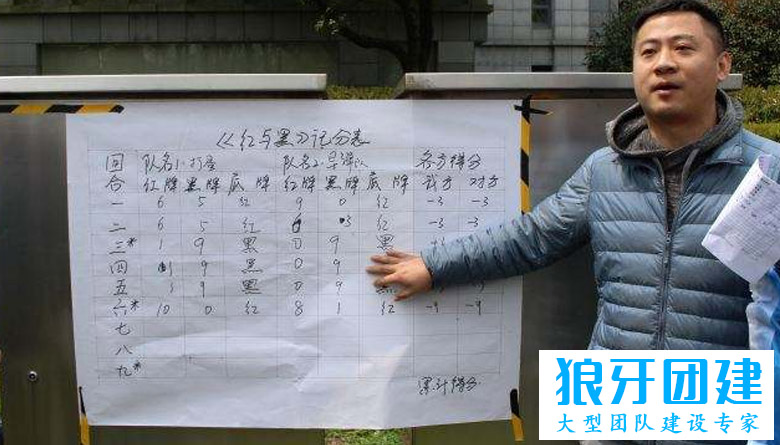 《红与黑》记分表
回合 队名1: 队名2: 各方得分
红牌 黑牌 底牌 红牌 黑牌 底牌 我方 对方
一 6 5 红 9 0 红 -3 -3
二 6 5 红 3 红 -3 -3
三* 1 9 黑 0 9 黑
四 9 黑 0 9
五 3 9 黑 0 9 黑
六* 10 0 红 8 1 红 -9 -9
七
八
九*
累计得分
狼牙团建
大型团队建设专家